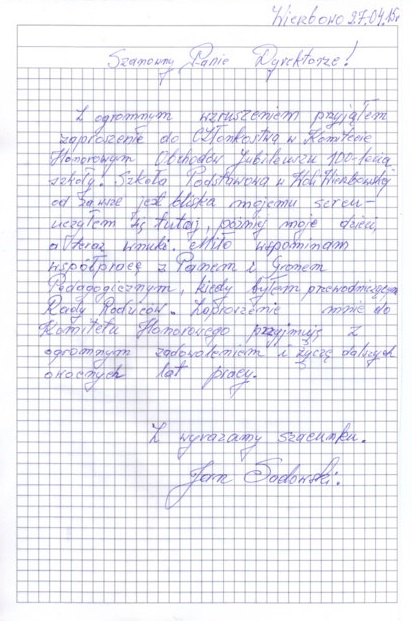 Wierzbowo 27.04.15r
Szanowny Panie Dyrektorze!
Z ogromnym wzruszeniem przyjąłem
zaproszenie do Członkostwa w Komitecie
Honorowym Obchodów Jubileuszu 100-lecia
szkoły. Szkoła Podstawowa w
od zawsze jest bliska mojemu sercu -
uczyłem się tutaj, później moje dzieci,
a teraz wnuki. Miło wspominam
współpracę z Panem i Gronem
Pedagogicznym, kiedy byłem przewodniczącym
Rady Rodziców. Zaproszenie mnie do
Komitetu Honorowego przyjmuję z
ogromnym zadowoleniem i życzę dalszych
owocnych lat pracy.
Z wyrazamy szacunku.
Jan Sadowski.